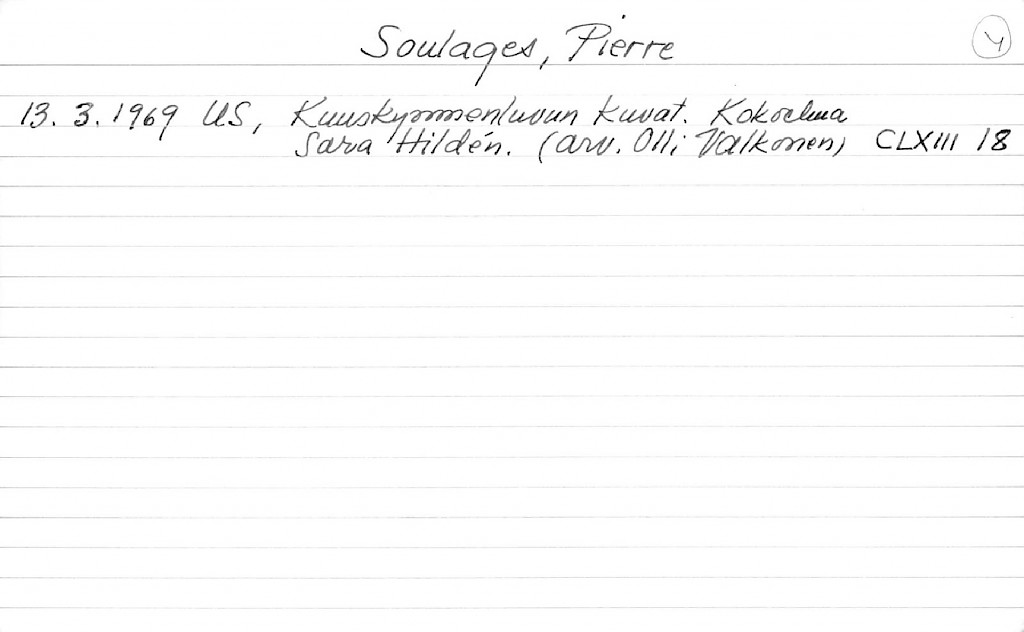 Soulages, Pierre
Y
13. 3. 1969 US, Kuuskymmenluvun kuvat. Kokoelma
Sara Hildén. (arv. Olli Valkonen) CLXIII 18